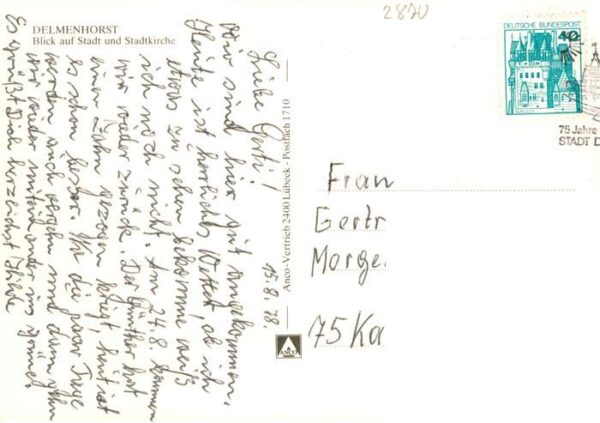 2870
DELMENHORST
Blick auf Stadt und Stadtkirche
DEUTSCHE BUNDESPOST
40
75 Jahre
STADT D
Anco-Vertrieb 2400 Lübeck - Postfach 1710
ANCO
15.8.78.
Liebe Gerti!
Wir sind hier gut angekommen.
Heute ist herrliches Wetter, ob ich
etwas zu sehen bekomme weiß
ich noch nicht. Am 24.8. kommen
wir wieder zurück. Der Günther hat
einen Zahn gezogen kriegt, heut ist
es schon besser. Die paar Tage
werden auch vergehn und dann gehn
wir wieder miteinander ins
Es grüßt Dich herzlichst
Frau
Gertr
Morge
75 Ka